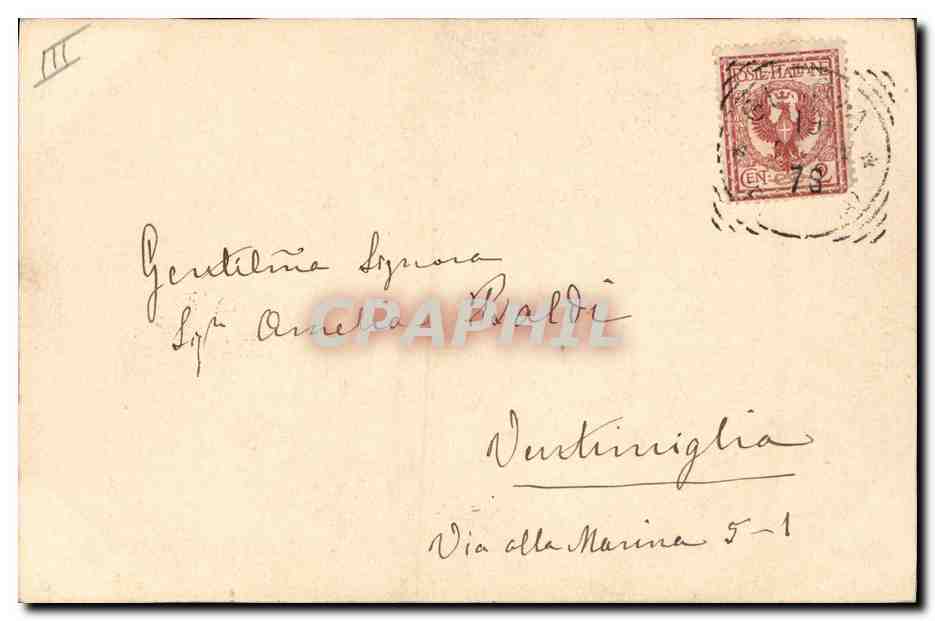 III
POSTE ITALIANE
CEN. 2
73
Gentilma Signora
Sigra Amelia Baldi
CPAPHIL
Ventimiglia
Via alla Marina 5-1